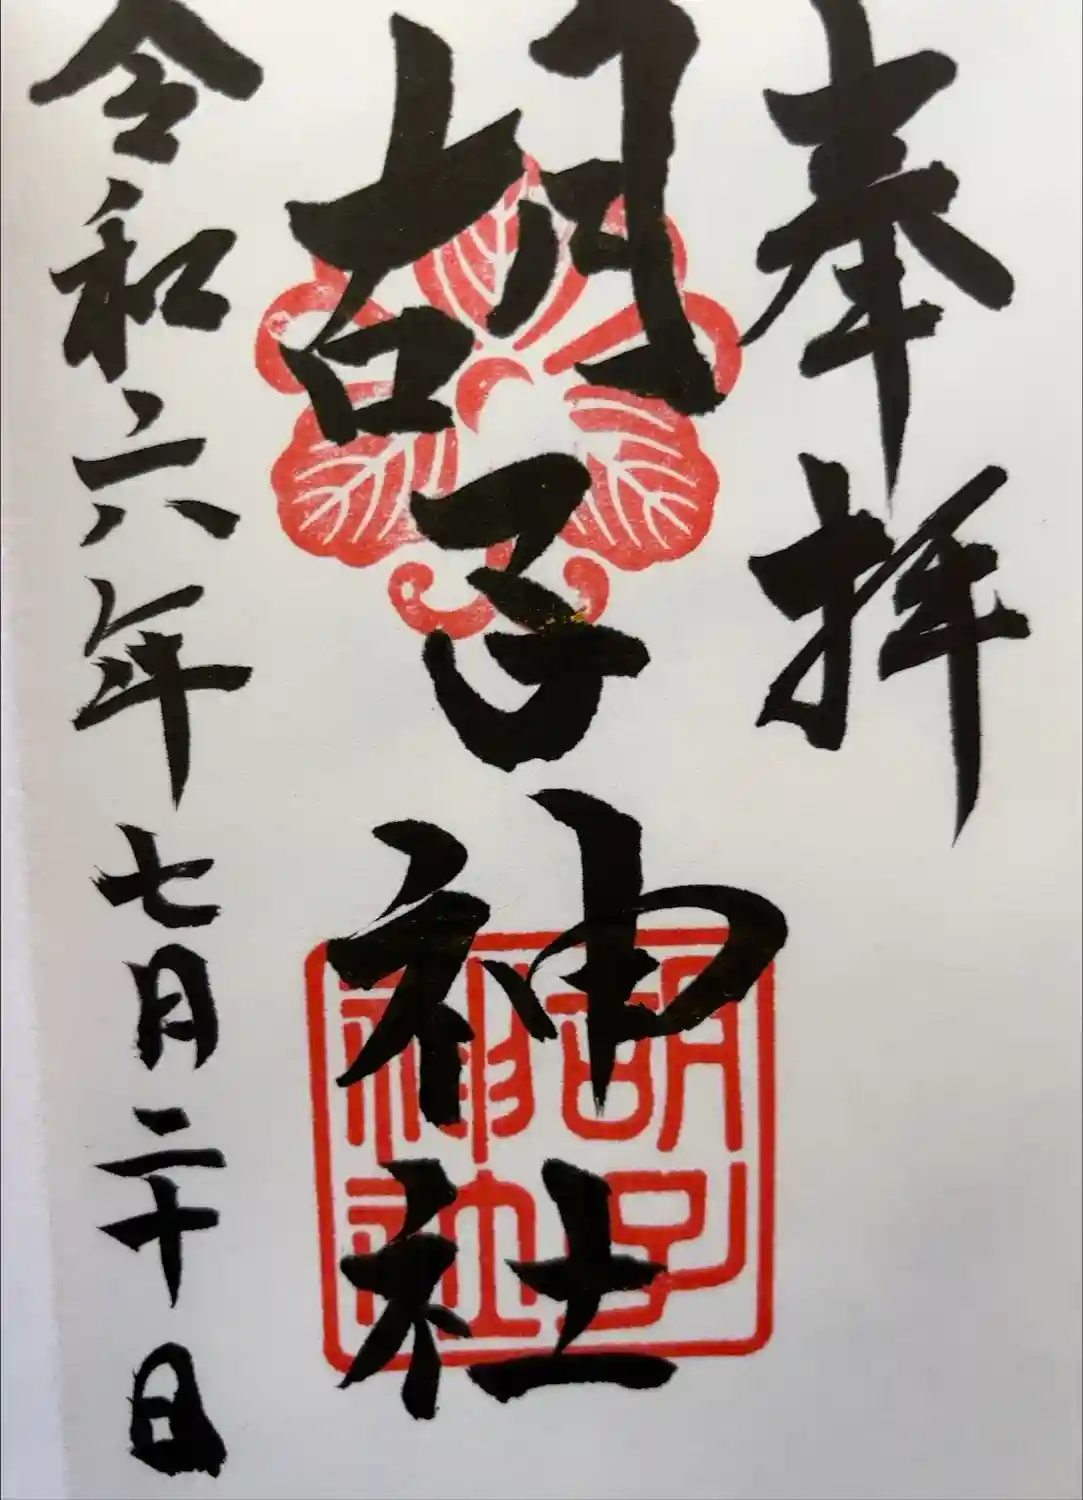 奉拝
胡子神社
令和六年七月二十日
胡子
神社